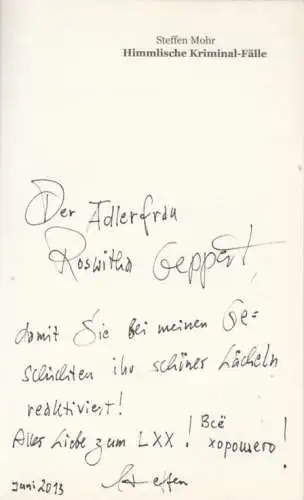 Steffen Mohr
Himmlische Kriminal-Fälle
Der Adlerfrau
Roswitha Geppert,
damit Sie bei meinen Ge-
schichten ihr schönes Lächeln
reaktiviert!
Alles Liebe zum LXX! Всё
хорошего!
Juni 2013 Steffen